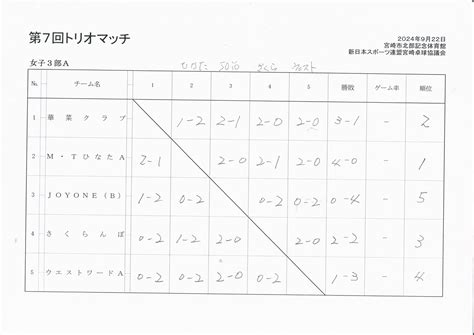 第7回トリオマッチ
2024年9月22日
宮崎市北部記念体育館
新日本スポーツ連盟宮崎卓球協議会
女子3部A
ひなた joio さくら ウェスト
№ チーム名 1 2 3 4 5 勝敗 ゲーム率 順位
1 華菜クラブ 1-2 2-1 2-0 2-0 3-1 - 2
2 M・TひなたA 2-1 2-0 2-1 2-0 4-0 - 1
3 JOYONE(B) 1-2 0-2 0-2 0-2 0-4 - 5
4 さくらんぼ 0-2 1-2 2-0 2-0 2-2 - 3
5 ウエストワードA 0-2 0-2 2-0 0-2 1-3 - 4